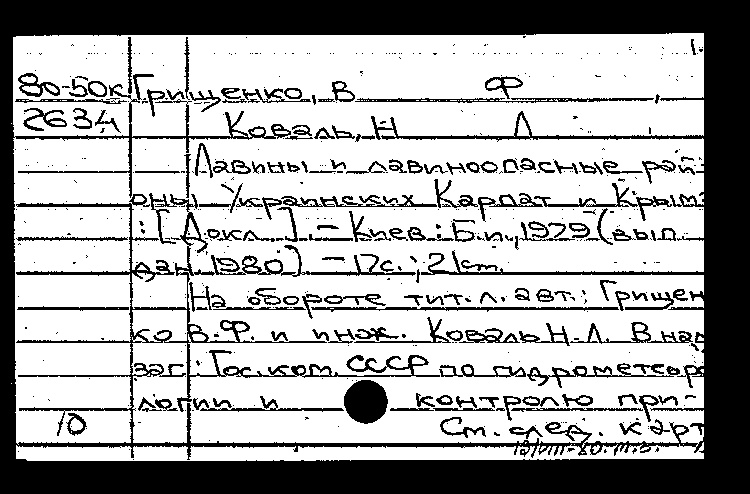 1.
80-50к Грищенко, В Ф ,
2634 Коваль, Н Л .
Лавины и лавиноопасные рай-
оны Украинских Карпат и Крыма
: [Докл.]. - Киев: Б.и., 1979 (вып.
дан. 1980). - 17с.; 21см.
На обороте тит. л. авт.: Грищен
ко В.Ф. и инж. Коваль Н.Л. В над
заг.: Гос. ком. СССР по гидрометеоро
логии и контролю при-
10 См. след. карт